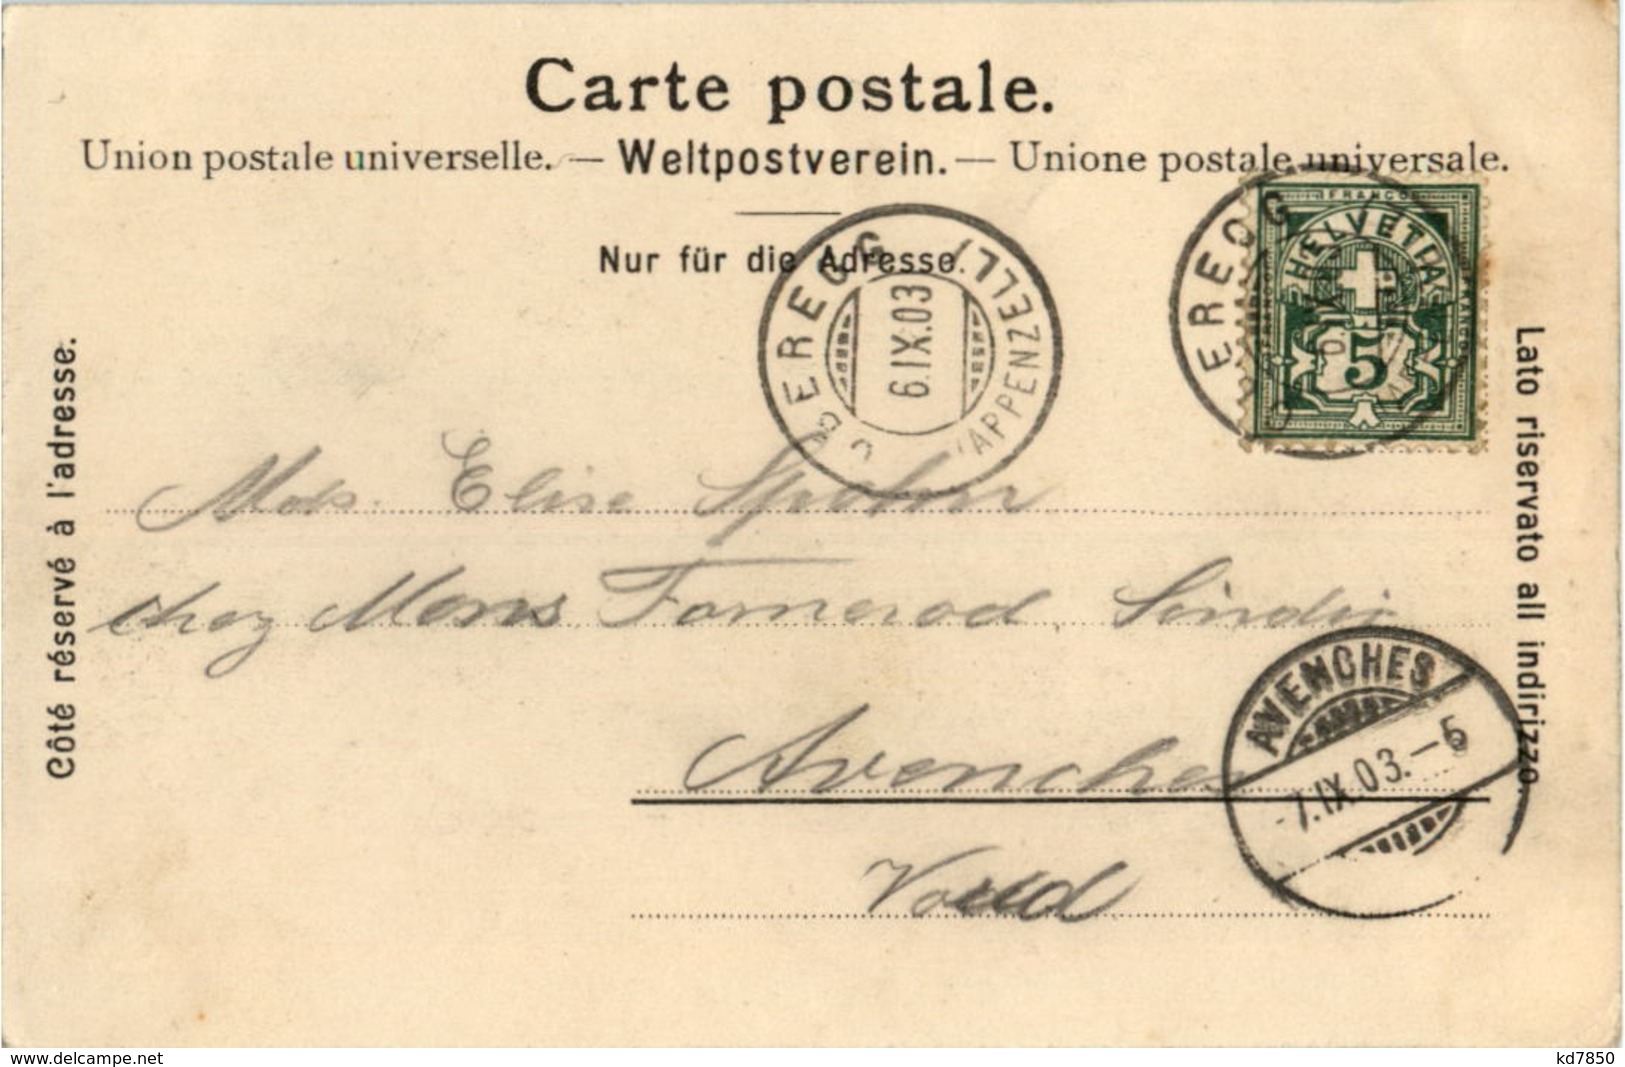 Carte postale.
Union postale universelle. — Weltpostverein. — Unione postale universale.
Nur für die Adresse.
Côté réservé à l'adresse.
Lato riservato all indirizzo.
OBEREGG (APPENZELL)
6.IX.03
EREGG
FRANCO
HELVETIA
5
Elise
chez Mons Fornerod Sindic
Avenches
Vaud
AVENCHES
-7.IX.03.-5
www.delcampe.net
kd7850